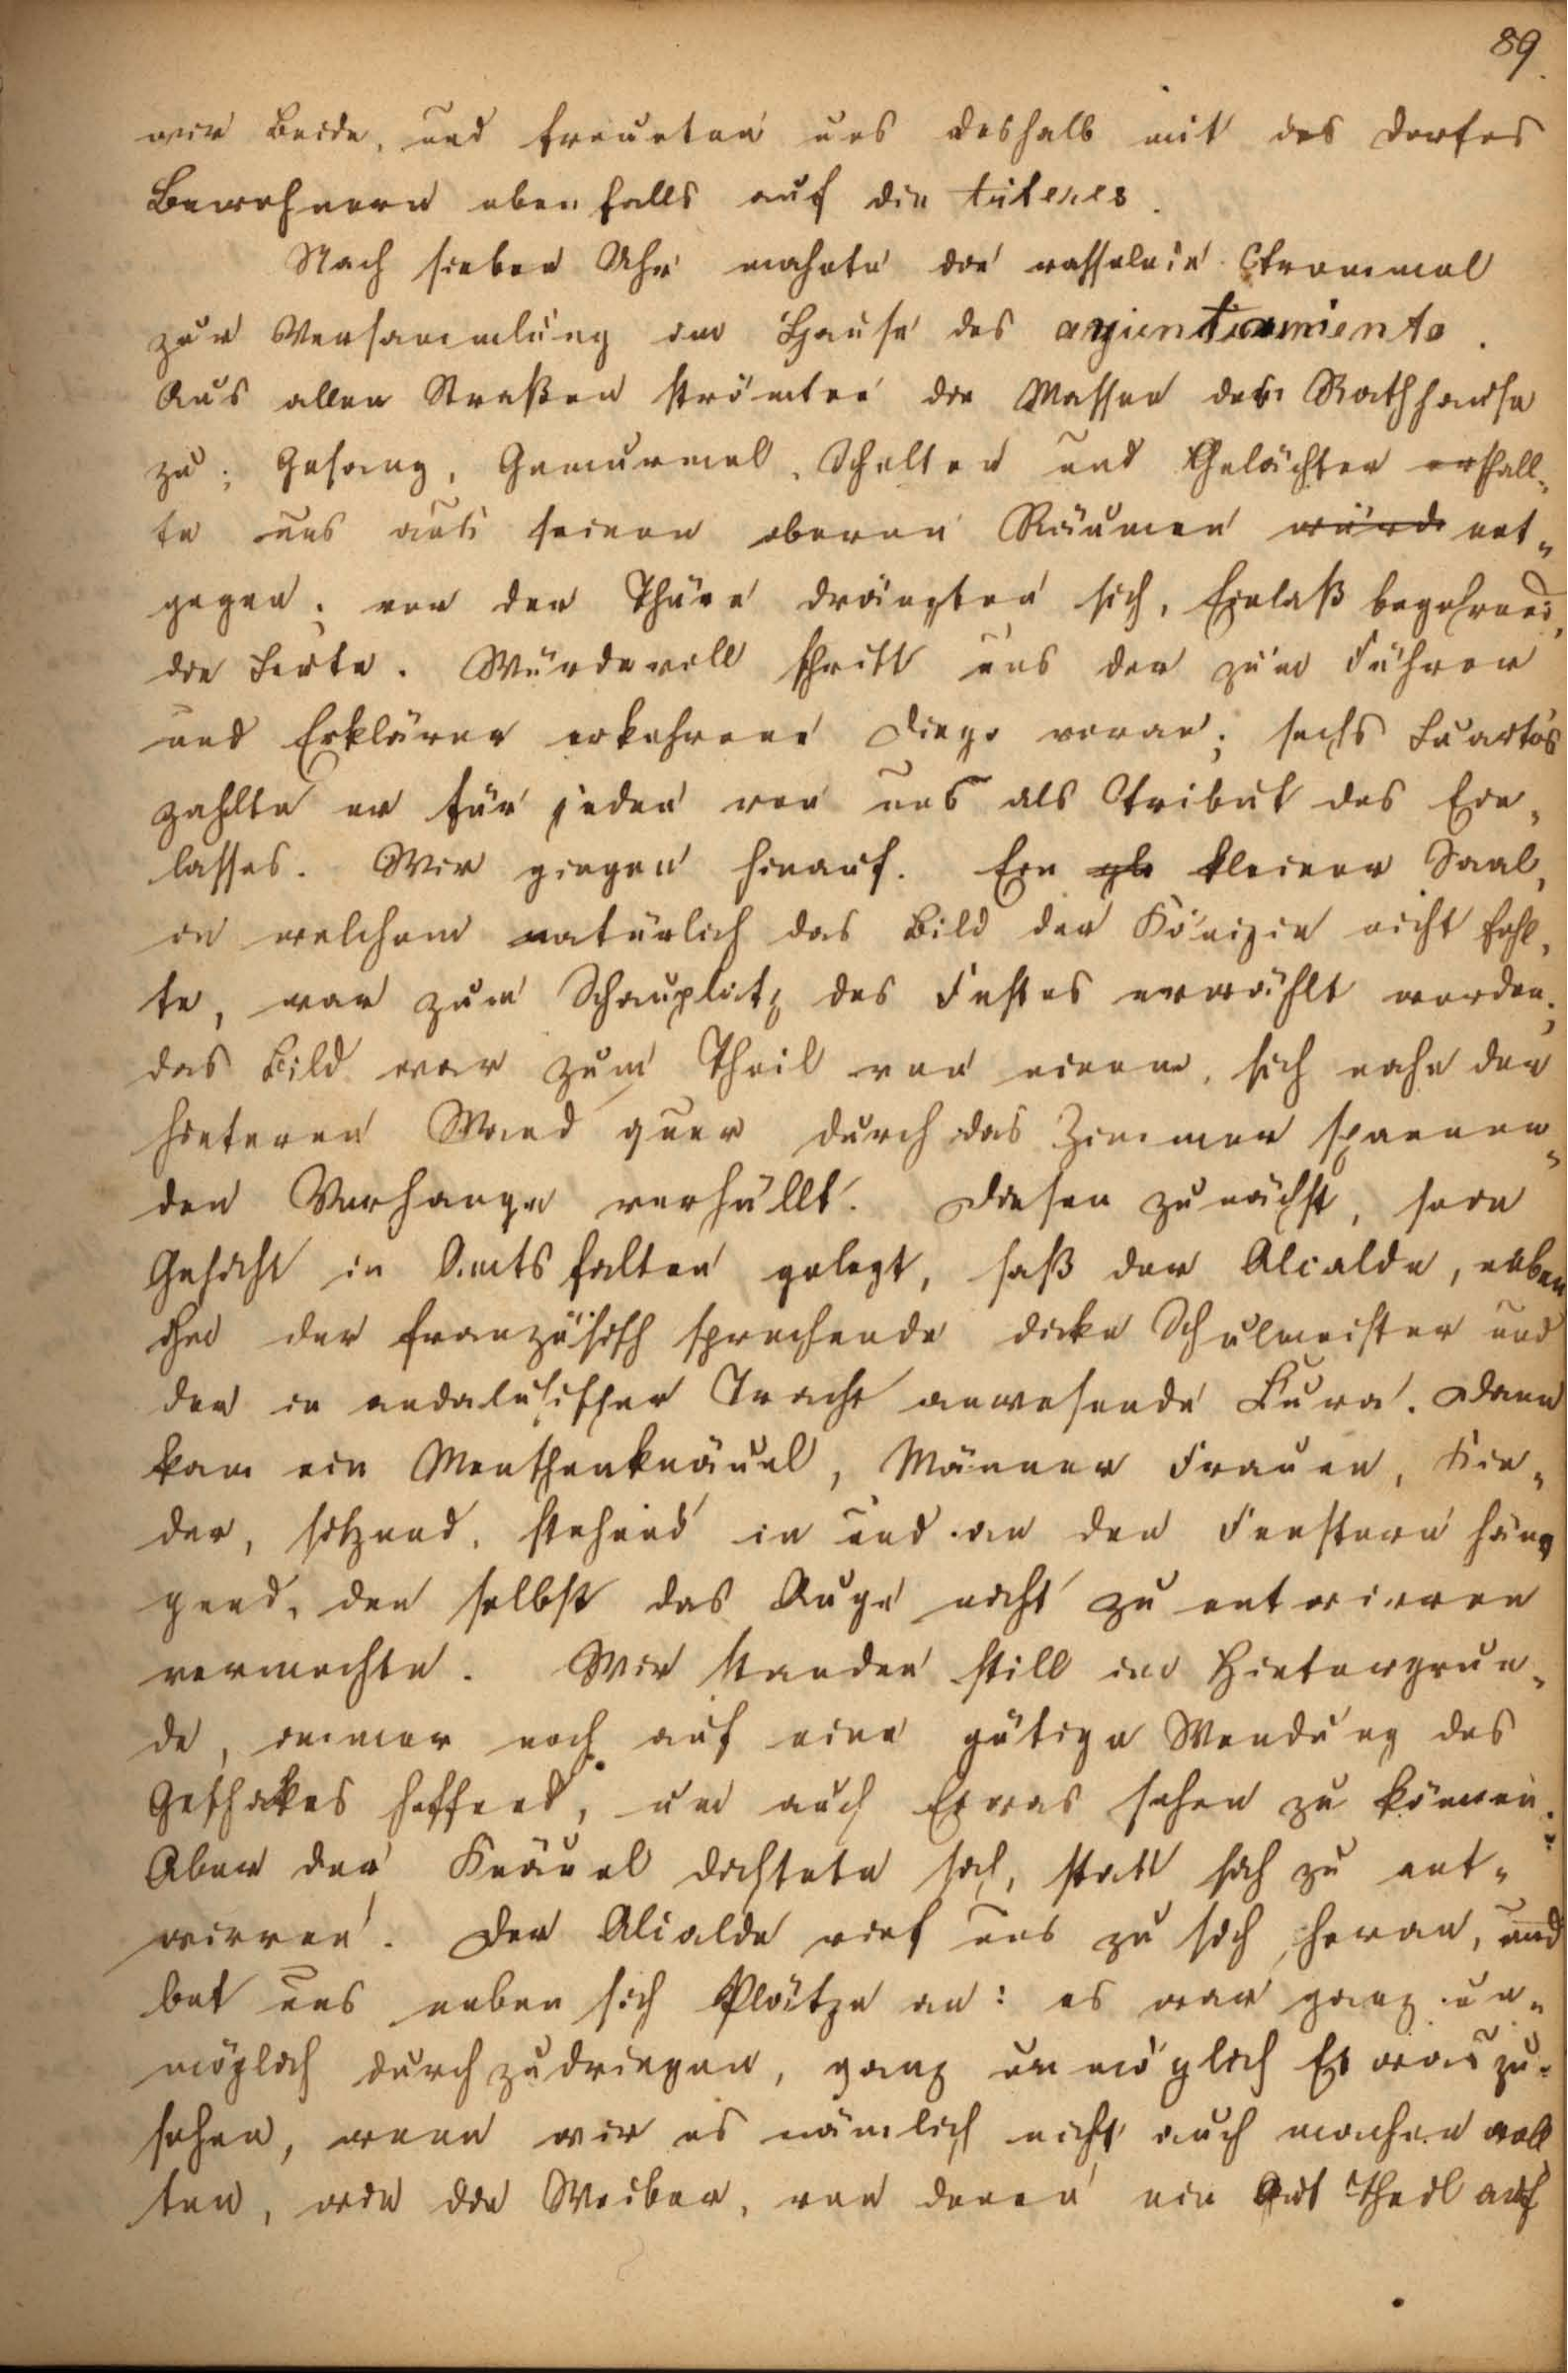 89.
wir beide, und freueten uns deshalb mit des Dorfes
Bewohnern ebenfalls auf die títeres.
Nach sieben Uhr mahnte die rasselnde Trommel
zur Versammlung im Hause des ayuntamiento.
Aus allen Straßen strömten die Massen dem Rathhause
zu; Gesang, Gemurmel, Schelten und Gelächter erschall-
te uns aus seinen oberen Räumen ent-
gegen; vor der Thüre drängten sich, Einlaß begehrend,
die Leute. Würdevoll schritt uns der zum Führer
und Erklärer erkohrene Diego voran; sechs Cuartos
zahlte er für jeden von uns als Tribut des Ein-
lasses. Wir gingen hinauf. Ein kleiner Saal,
in welchem natürlich das Bild der Königin nicht fehl-
te, war zum Schauplatz des Festes erwählt worden;
das Bild war zum Theil von einem, sich nahe der
hinteren Wand quer durch das Zimmer spannen-
den Vorhange verhüllt. Diesem zunächst, sein
Gesicht in Amtsfalten gelegt, saß der Alcalde, neben
ihm der französisch sprechende dicke Schulmeister und
der in andalusischer Tracht anwesende Cura. Dann
kam ein Menschenknäuel, Männer Frauen, Kin-
der, sitzend, stehend in und an den Fenstern hän-
gend, den selbst das Auge nicht zu entwirren
vermochte. Wir standen still im Hintergrun-
de, immer noch auf eine gütige Wendung des
Geschickes hoffend, um auch Etwas sehen zu können.
Aber der Knäuel dichtete sich, statt sich zu ent-
wirren. Der Alcalde rief uns zu sich heran, und
bot uns neben sich Plätze an: es war ganz un-
möglich durchzudringen, ganz unmöglich Etwas zu
sehen, wenn wir es nämlich nicht auch machen woll
ten, wie die Weiber, von denen ein Theil auf